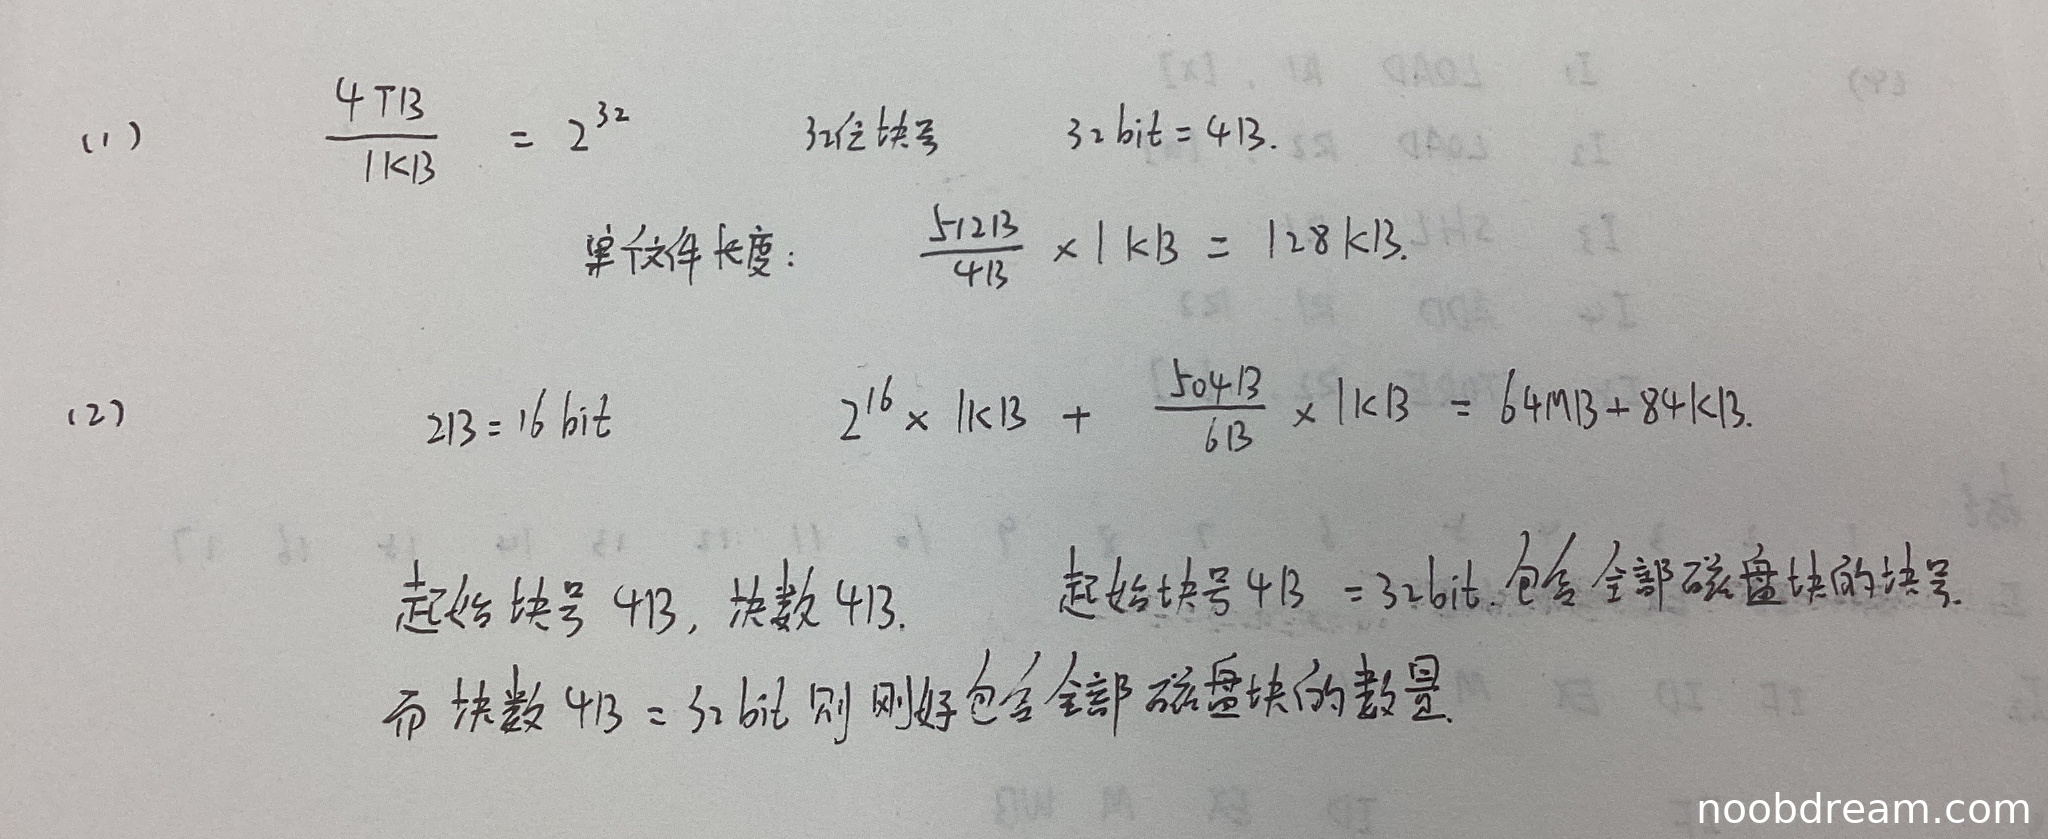 (1) 4TB / 1KB = 2^32 32位块号 32bit = 4B.
单个文件长度: 512B / 4B × 1KB = 128KB.
(2) 2B = 16bit 2^16 × 1KB + 504B / 6B × 1KB = 64MB + 84KB.
起始块号4B, 块数4B. 起始块号4B = 32bit. 包含全部磁盘块的块号.
而块数4B = 32bit 则刚好包含全部磁盘块的数量.
noobdream.com